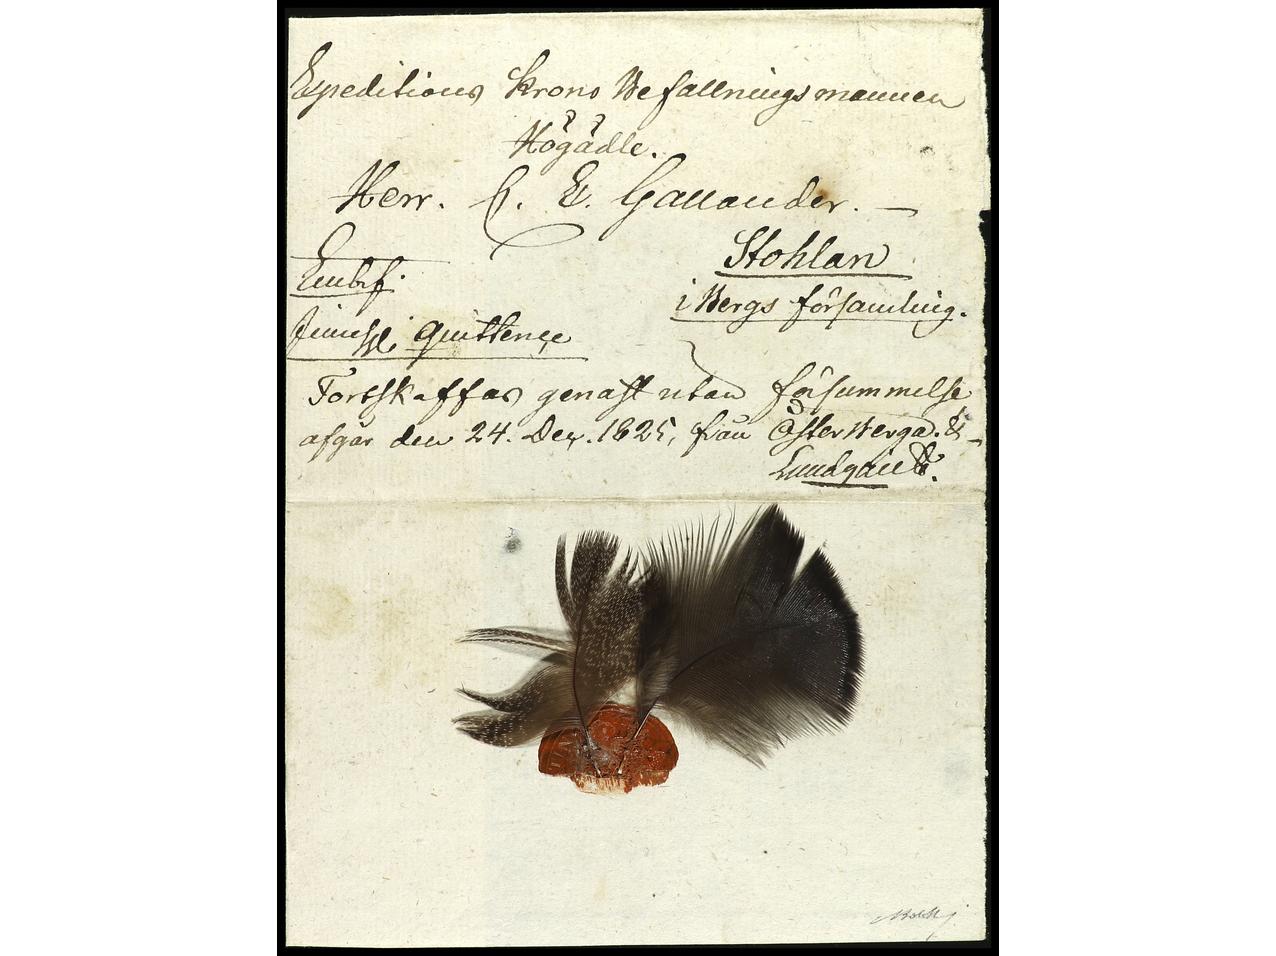 Expeditions Krono Befallningsmannen
Högädle.
Herr. C. E. Gallander.
Stohlan
Embf:
i Bergs församling.
quittence
Fortskaffas genast utan försummelse
afgår den 24. Dex. 1825, från Österberga. &